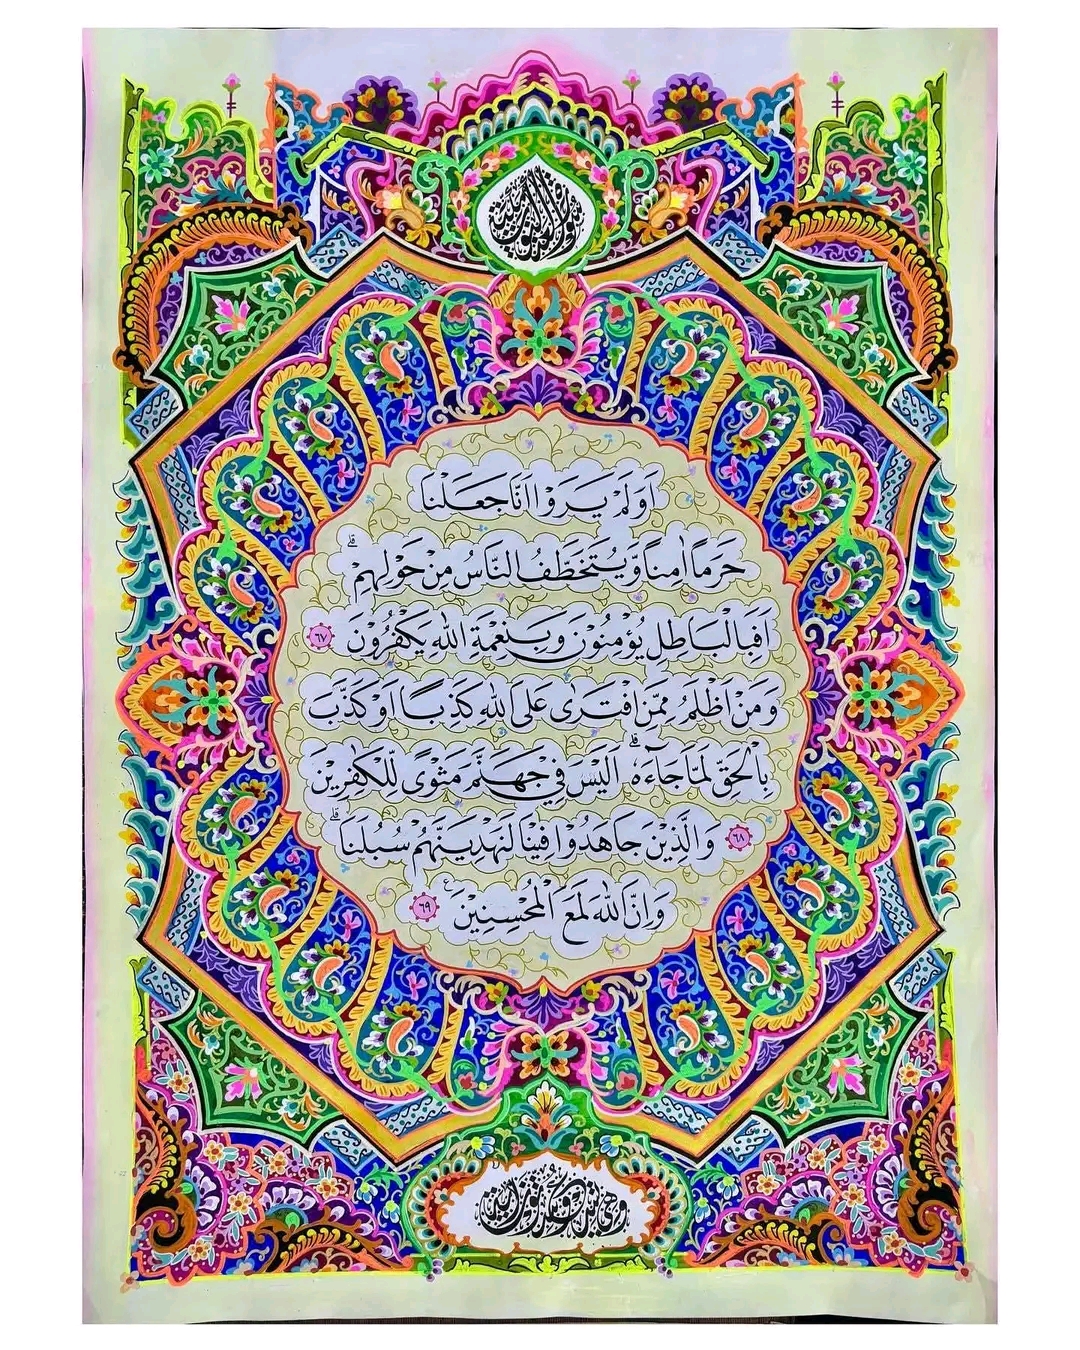 اَوَلَمْ يَرَوْا اَنَّا جَعَلْنَا
حَرَمًا اٰمِنًا وَّيُتَخَطَّفُ النَّاسُ مِنْ حَوْلِهِمْۗ
اَفَبِالْبَاطِلِ يُؤْمِنُوْنَ وَبِنِعْمَةِ اللّٰهِ يَكْفُرُوْنَ ٦٧
وَمَنْ اَظْلَمُ مِمَّنِ افْتَرٰى عَلَى اللّٰهِ كَذِبًا اَوْ كَذَّبَ
بِالْحَقِّ لَمَّا جَاۤءَهٗۗ اَلَيْسَ فِيْ جَهَنَّمَ مَثْوًى لِّلْكٰفِرِيْنَ
٦٨ وَالَّذِيْنَ جَاهَدُوْا فِيْنَا لَنَهْدِيَنَّهُمْ سُبُلَنَاۗ
وَاِنَّ اللّٰهَ لَمَعَ الْمُحْسِنِيْنَ ࣖ ٦٩